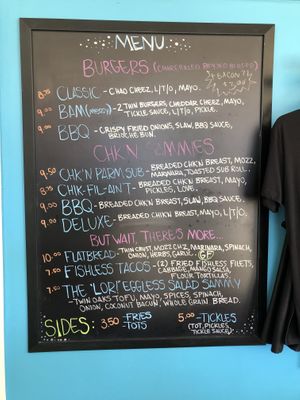 MENU
BURGERS (CHARGRILLED BEYOND BURGER)
BACON??
$2.00
8.75 CLASSIC - CHAO CHEEZ, L/T/O, MAYO.
9.00 BAM (MESSY) - 2 THIN BURGERS, CHEDDAR CHEEZ, MAYO,
TICKLE SAUCE, L/T/O, PICKLE.
9.00 BBQ - CRISPY FRIED ONIONS, SLAW, BBQ SAUCE,
BRIOCHE BUN.
CHK'N
9.50 CHK'N PARM SUB - BREADED CHK'N BREAST, MOZZ,
MARINARA, TOASTED SUB ROLL.
8.75 CHIK-FIL-AIN'T - BREADED CHK'N BREAST, MAYO,
PICKLES, LOVE.
9.00 BBQ - BREADED CHK'N BREAST, SLAW, BBQ SAUCE.
9.00 DELUXE - BREADED CHK'N BREAST, MAYO, L/T/O.
BUT WAIT, THERE'S MORE...
10.00 FLATBREAD - THIN CRUST, MOZZ CHZ, MARINARA, SPINACH,
ONION, HERBS, GARLIC. GF
7.00 FISHLESS TACOS - (2) FRIED FISHLESS FILETS,
CABBAGE, MANGO SALSA,
FLOUR TORTILLAS.
THE "LORI" EGGLESS SALAD SAMMY
- TWIN OAKS TOFU, MAYO, SPICES, SPINACH,
ONION, COCONUT BACON, WHOLE GRAIN BREAD.
SIDES: 3.50 - FRIES
- TOTS
5.00 - TICKLES
(TOT, PICKLES,
TICKLE SAUCE)